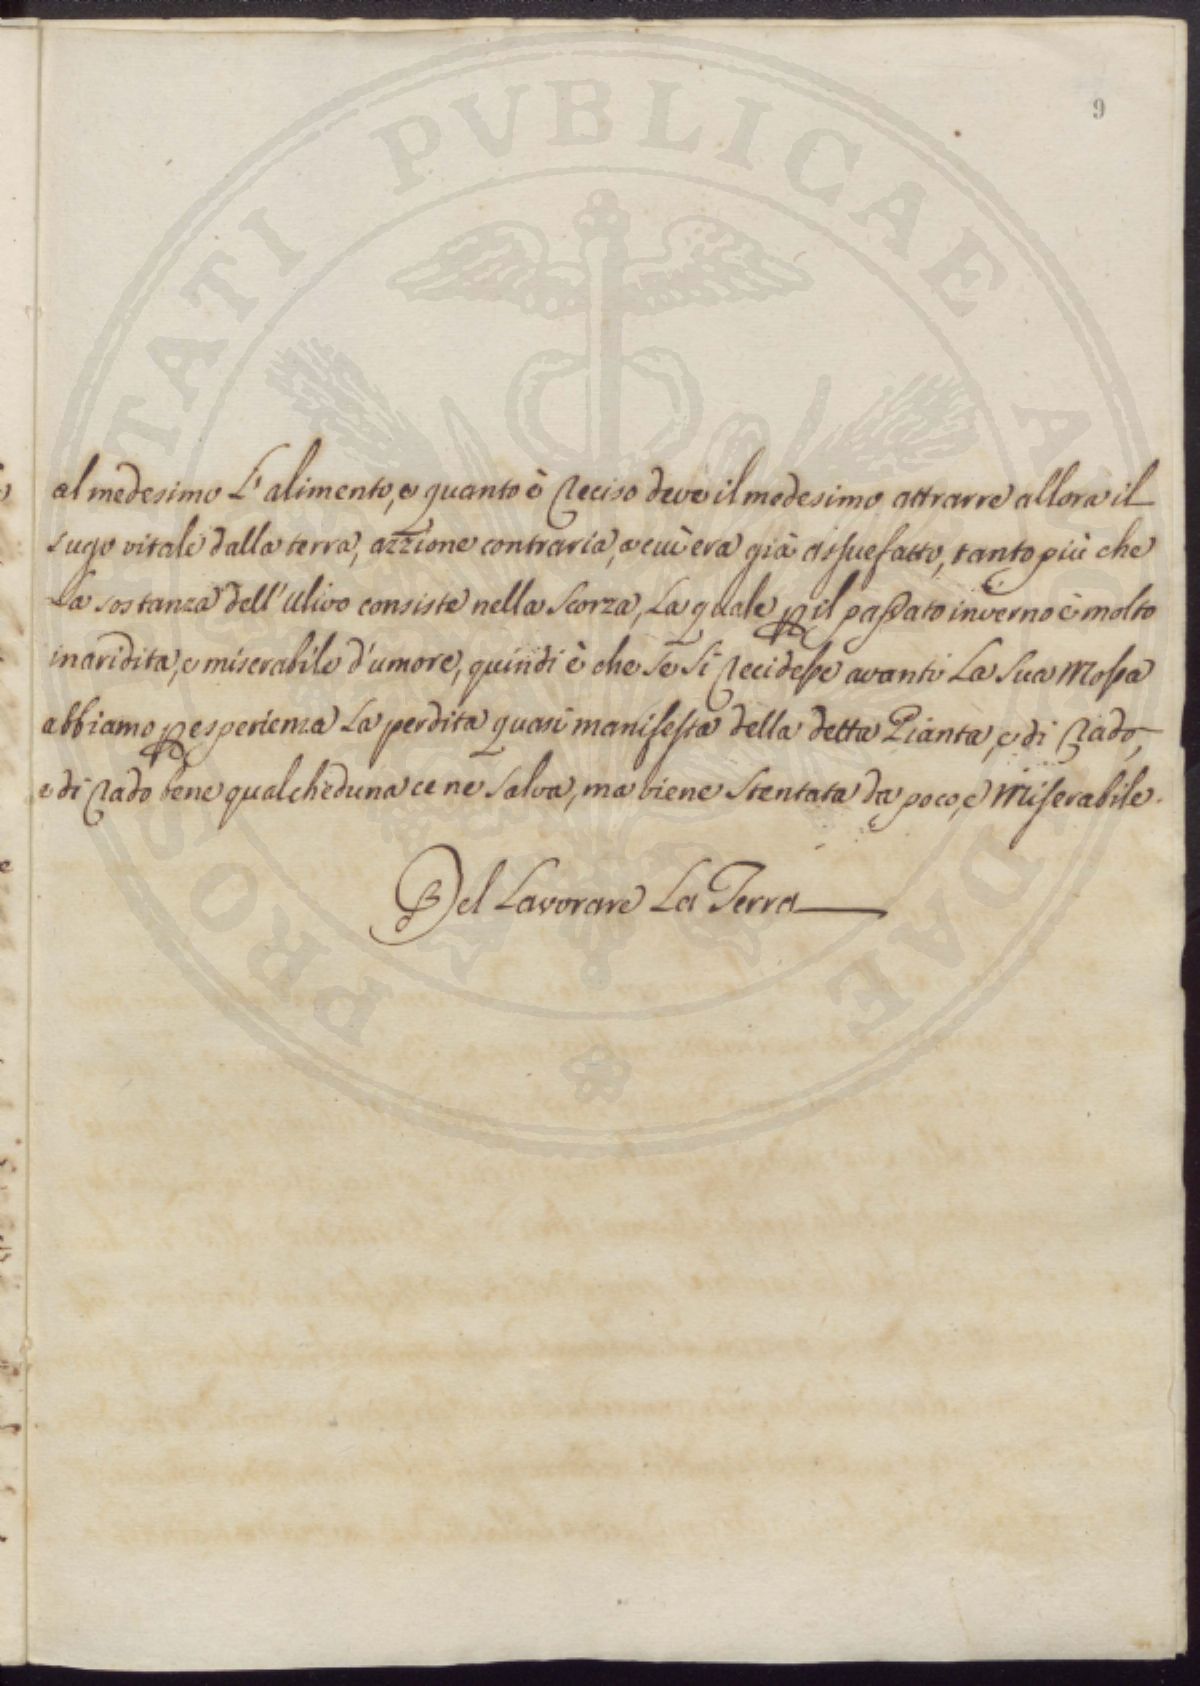 9
al medesimo L'alimento, e quanto è Reciso deve il medesimo attrarre allora il
sugo vitale dalla terra, azzione contraria, a cui era già assuefatto, tanto più che
La sostanza dell'ulivo consiste nella Scorza, La quale p il passato inverno è molto
inaridita, e miserabile d'umore, quindi è che se si Recidesse avanti La sua Mossa
abbiamo p esperienza La perdita quasi manifesta della detta Pianta, e di Rado,
e di Rado bene qualcheduna ce ne Salva, ma viene Stentata da poco, e Miserabile.
Del Lavorare La Terra
PROSPERITATI PVBLICAE AVGENDAE